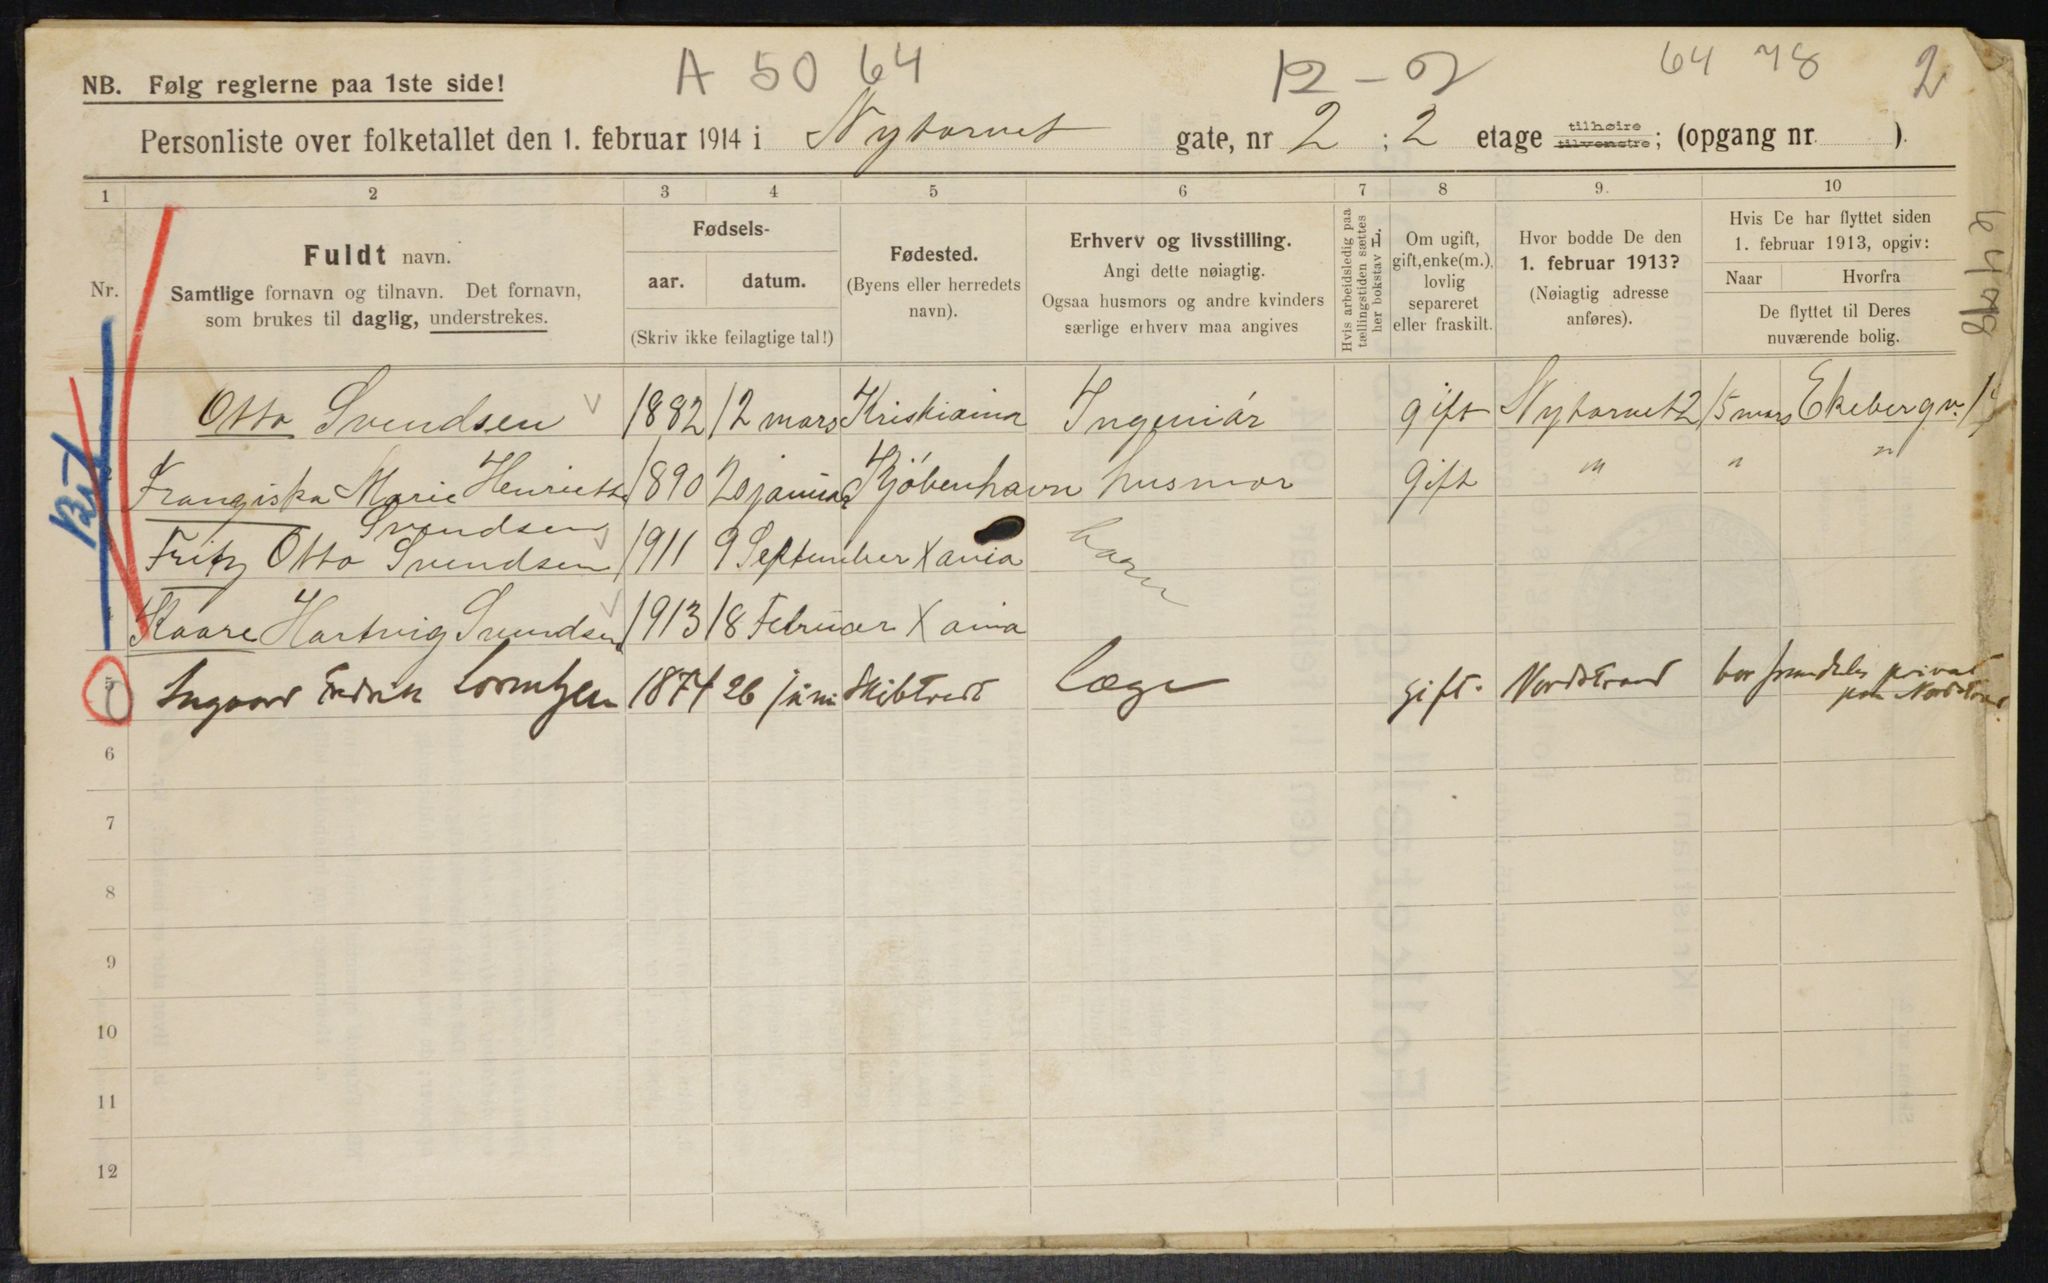 A 50 64 12 - 2 64 78 2
NB. Følg reglerne paa 1ste side!
Personliste over folketallet den 1. februar 1914 i Nytorvet gate, nr 2 ; 2 etage tilhøire tilvenstre; (opgang nr. ).
1 2 3 4 5 6 7 8 9. 10
Nr.
Fuldt navn.
Samtlige fornavn og tilnavn. Det fornavn,
som brukes til daglig, understrekes.
Fødsels-
aar. datum.
(Skriv ikke feilagtige tal!)
Fødested.
(Byens eller herredets
navn).
Erhverv og livsstilling.
Angi dette nøiagtig.
Ogsaa husmors og andre kvinders
særlige erhverv maa angives
Hvis arbeidsledig paa
tællingstiden sættes
her bokstav L.
Om ugift,
gift, enke(m.),
lovlig
separeret
eller fraskilt.
Hvor bodde De den
1. februar 1913?
(Nøiagtig adresse
anføres).
Hvis De har flyttet siden
1. februar 1913, opgiv:
Naar Hvorfra
De flyttet til Deres
nuværende bolig.
6478
Otto Svendsen 1882 12 mars Kristiania Ingeniør gift Nytorvet 2 15 mars Ekebergv.
Franziska Marie Henriette 1890 20 januar Kjøbenhavn husmor gift " " "
Svendsen
Fritz Otto Svendsen 1911 9 September Xania barn
Kaare Hartvig Svendsen 1913 18 Februar Xania
5 Ingvard Fredrik Lorentzen 1874 26 juni Skibtvedt læge gift. Nordstrand bor fremdeles privat
paa Nordstrand.
6
7
8
9
10
11
12